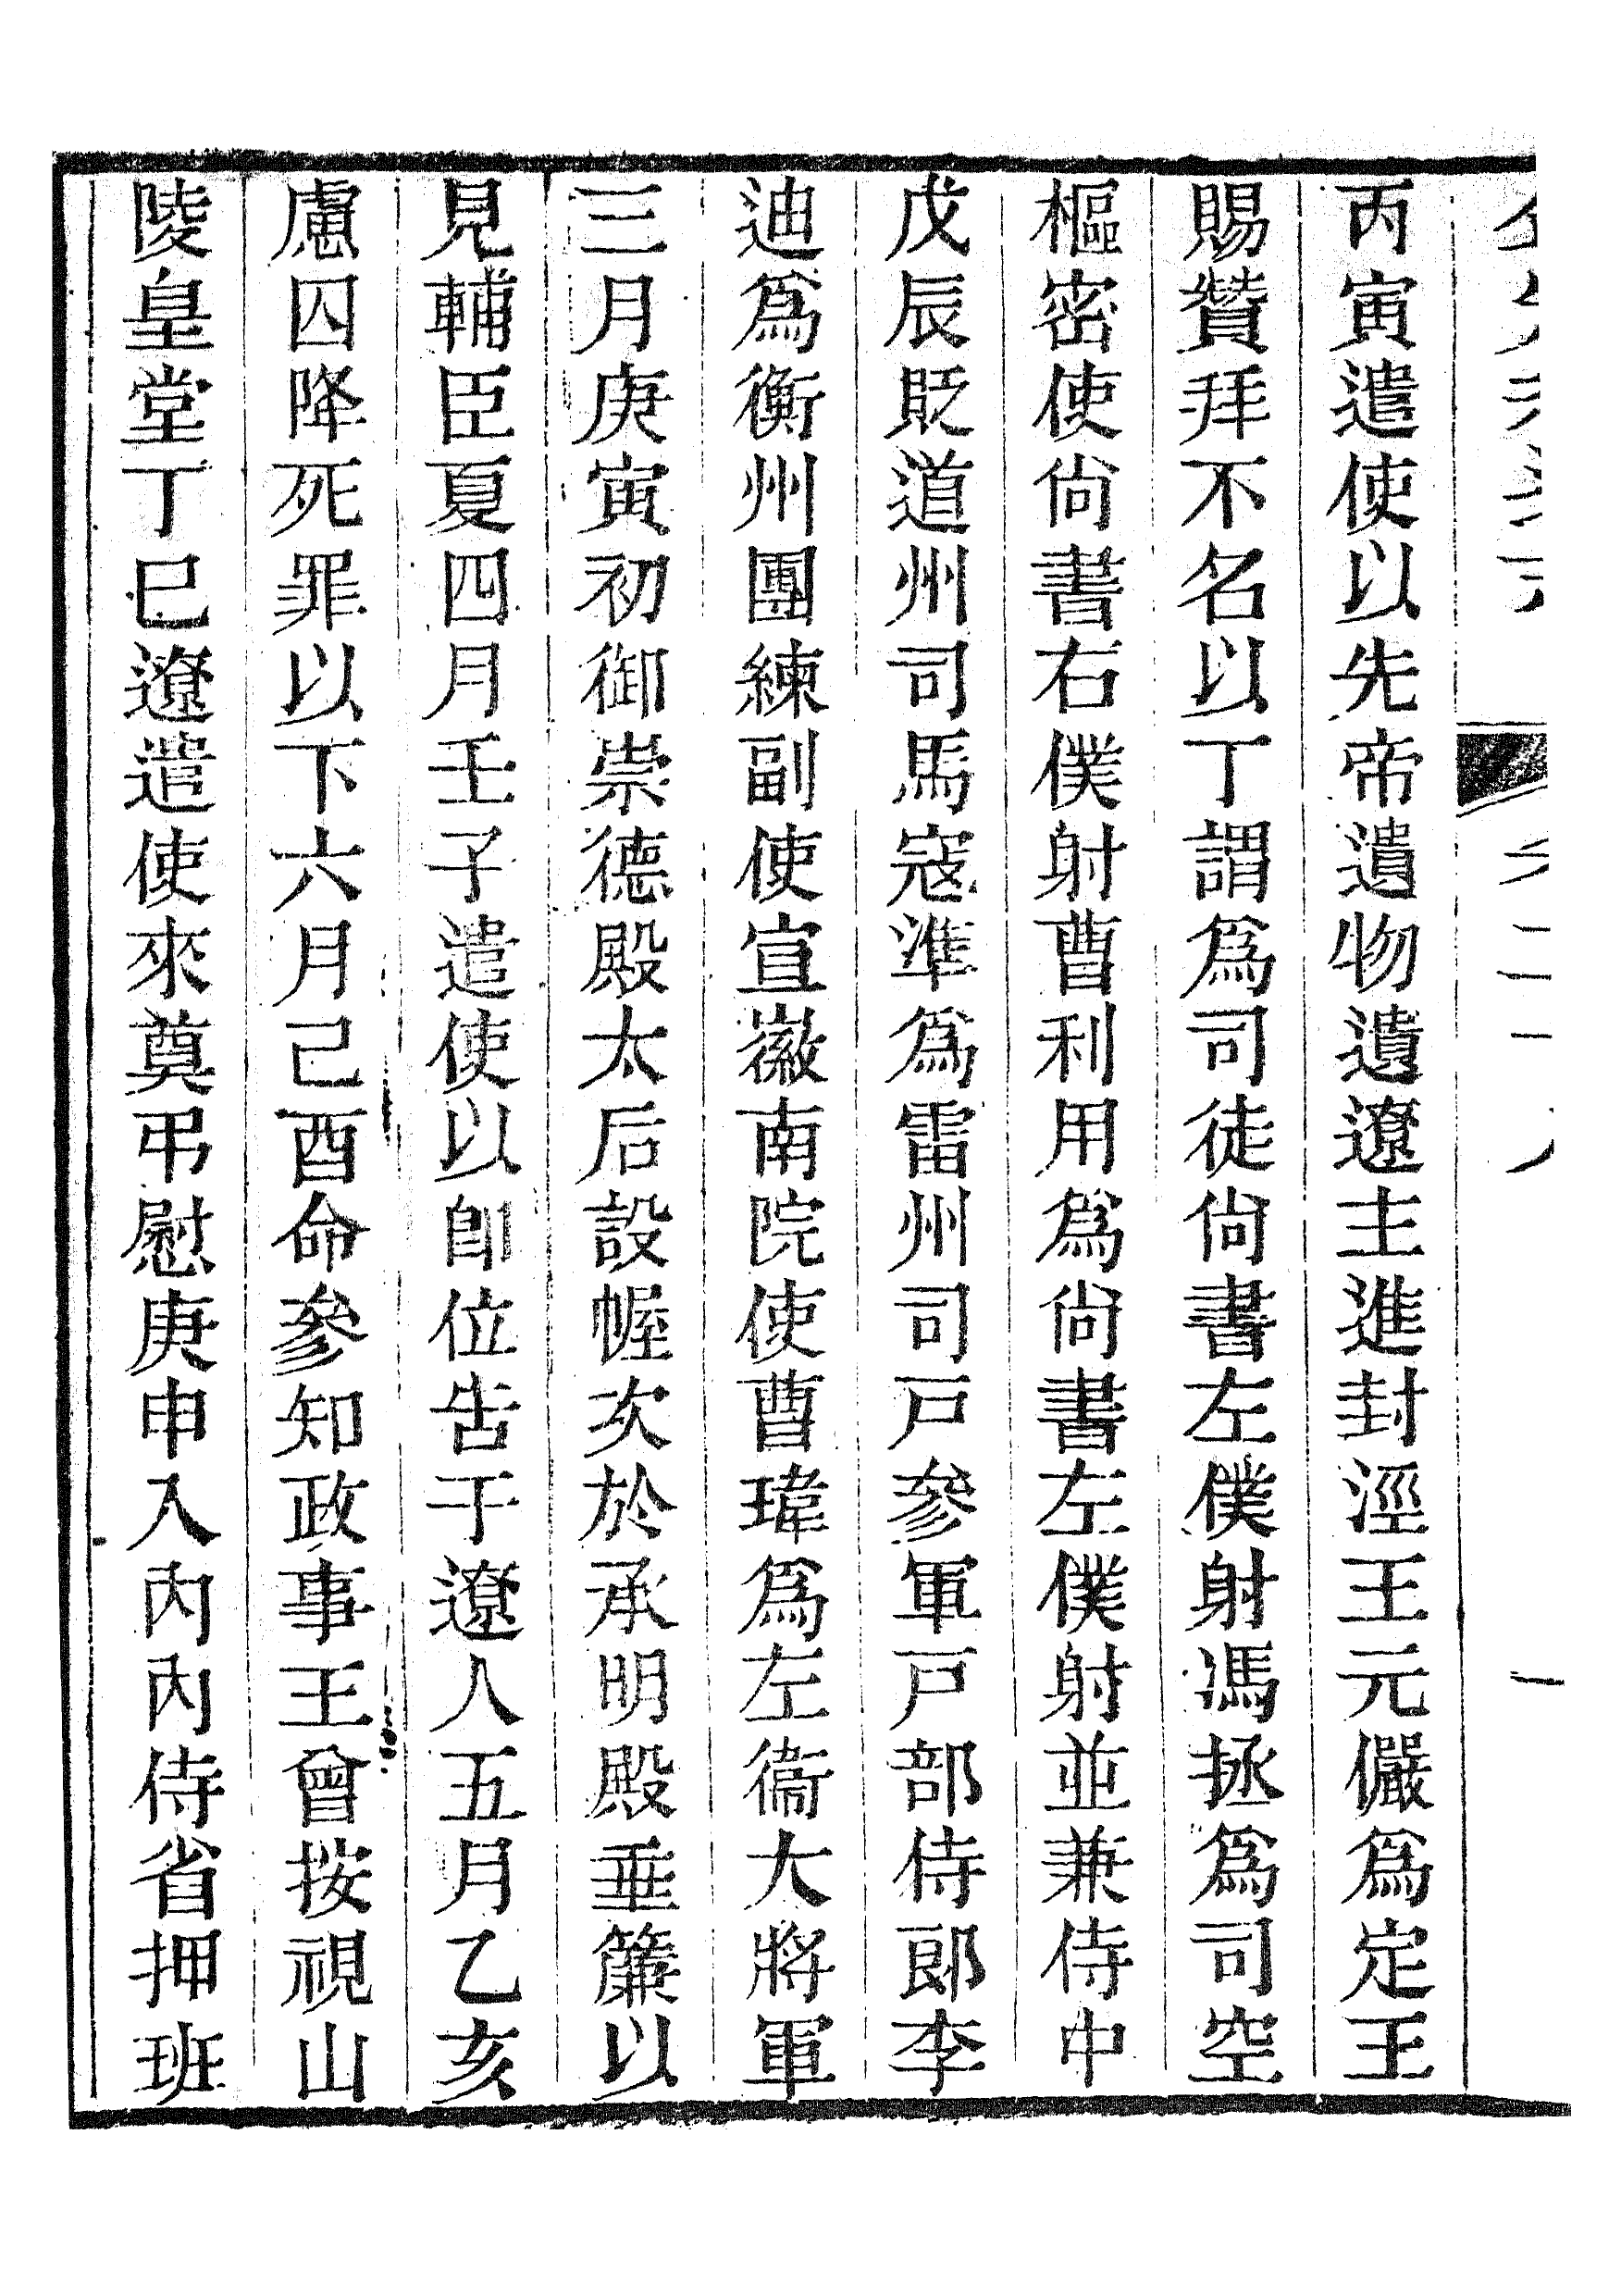 丙寅遣使以先帝遺物遺遼主進封涇王元儼爲定王
賜贊拜不名以丁謂爲司徒尙書左僕射馮拯爲司空
樞密使尙書右僕射曹利用爲尙書左僕射並兼侍中
戊辰貶道州司馬寇準爲雷州司戸參軍戸部侍郎李
迪爲衡州團練副使宣徽南院使曹瑋爲左衞大將軍
三月庚寅初御崇德殿太后設幄次於承明殿垂簾以
見輔臣夏四月壬子遣使以卽位告于遼人五月乙亥
慮囚降死罪以下六月己酉命參知政事王曾按視山
陵皇堂丁巳遼遣使來奠弔慰庚申入內內侍省押班